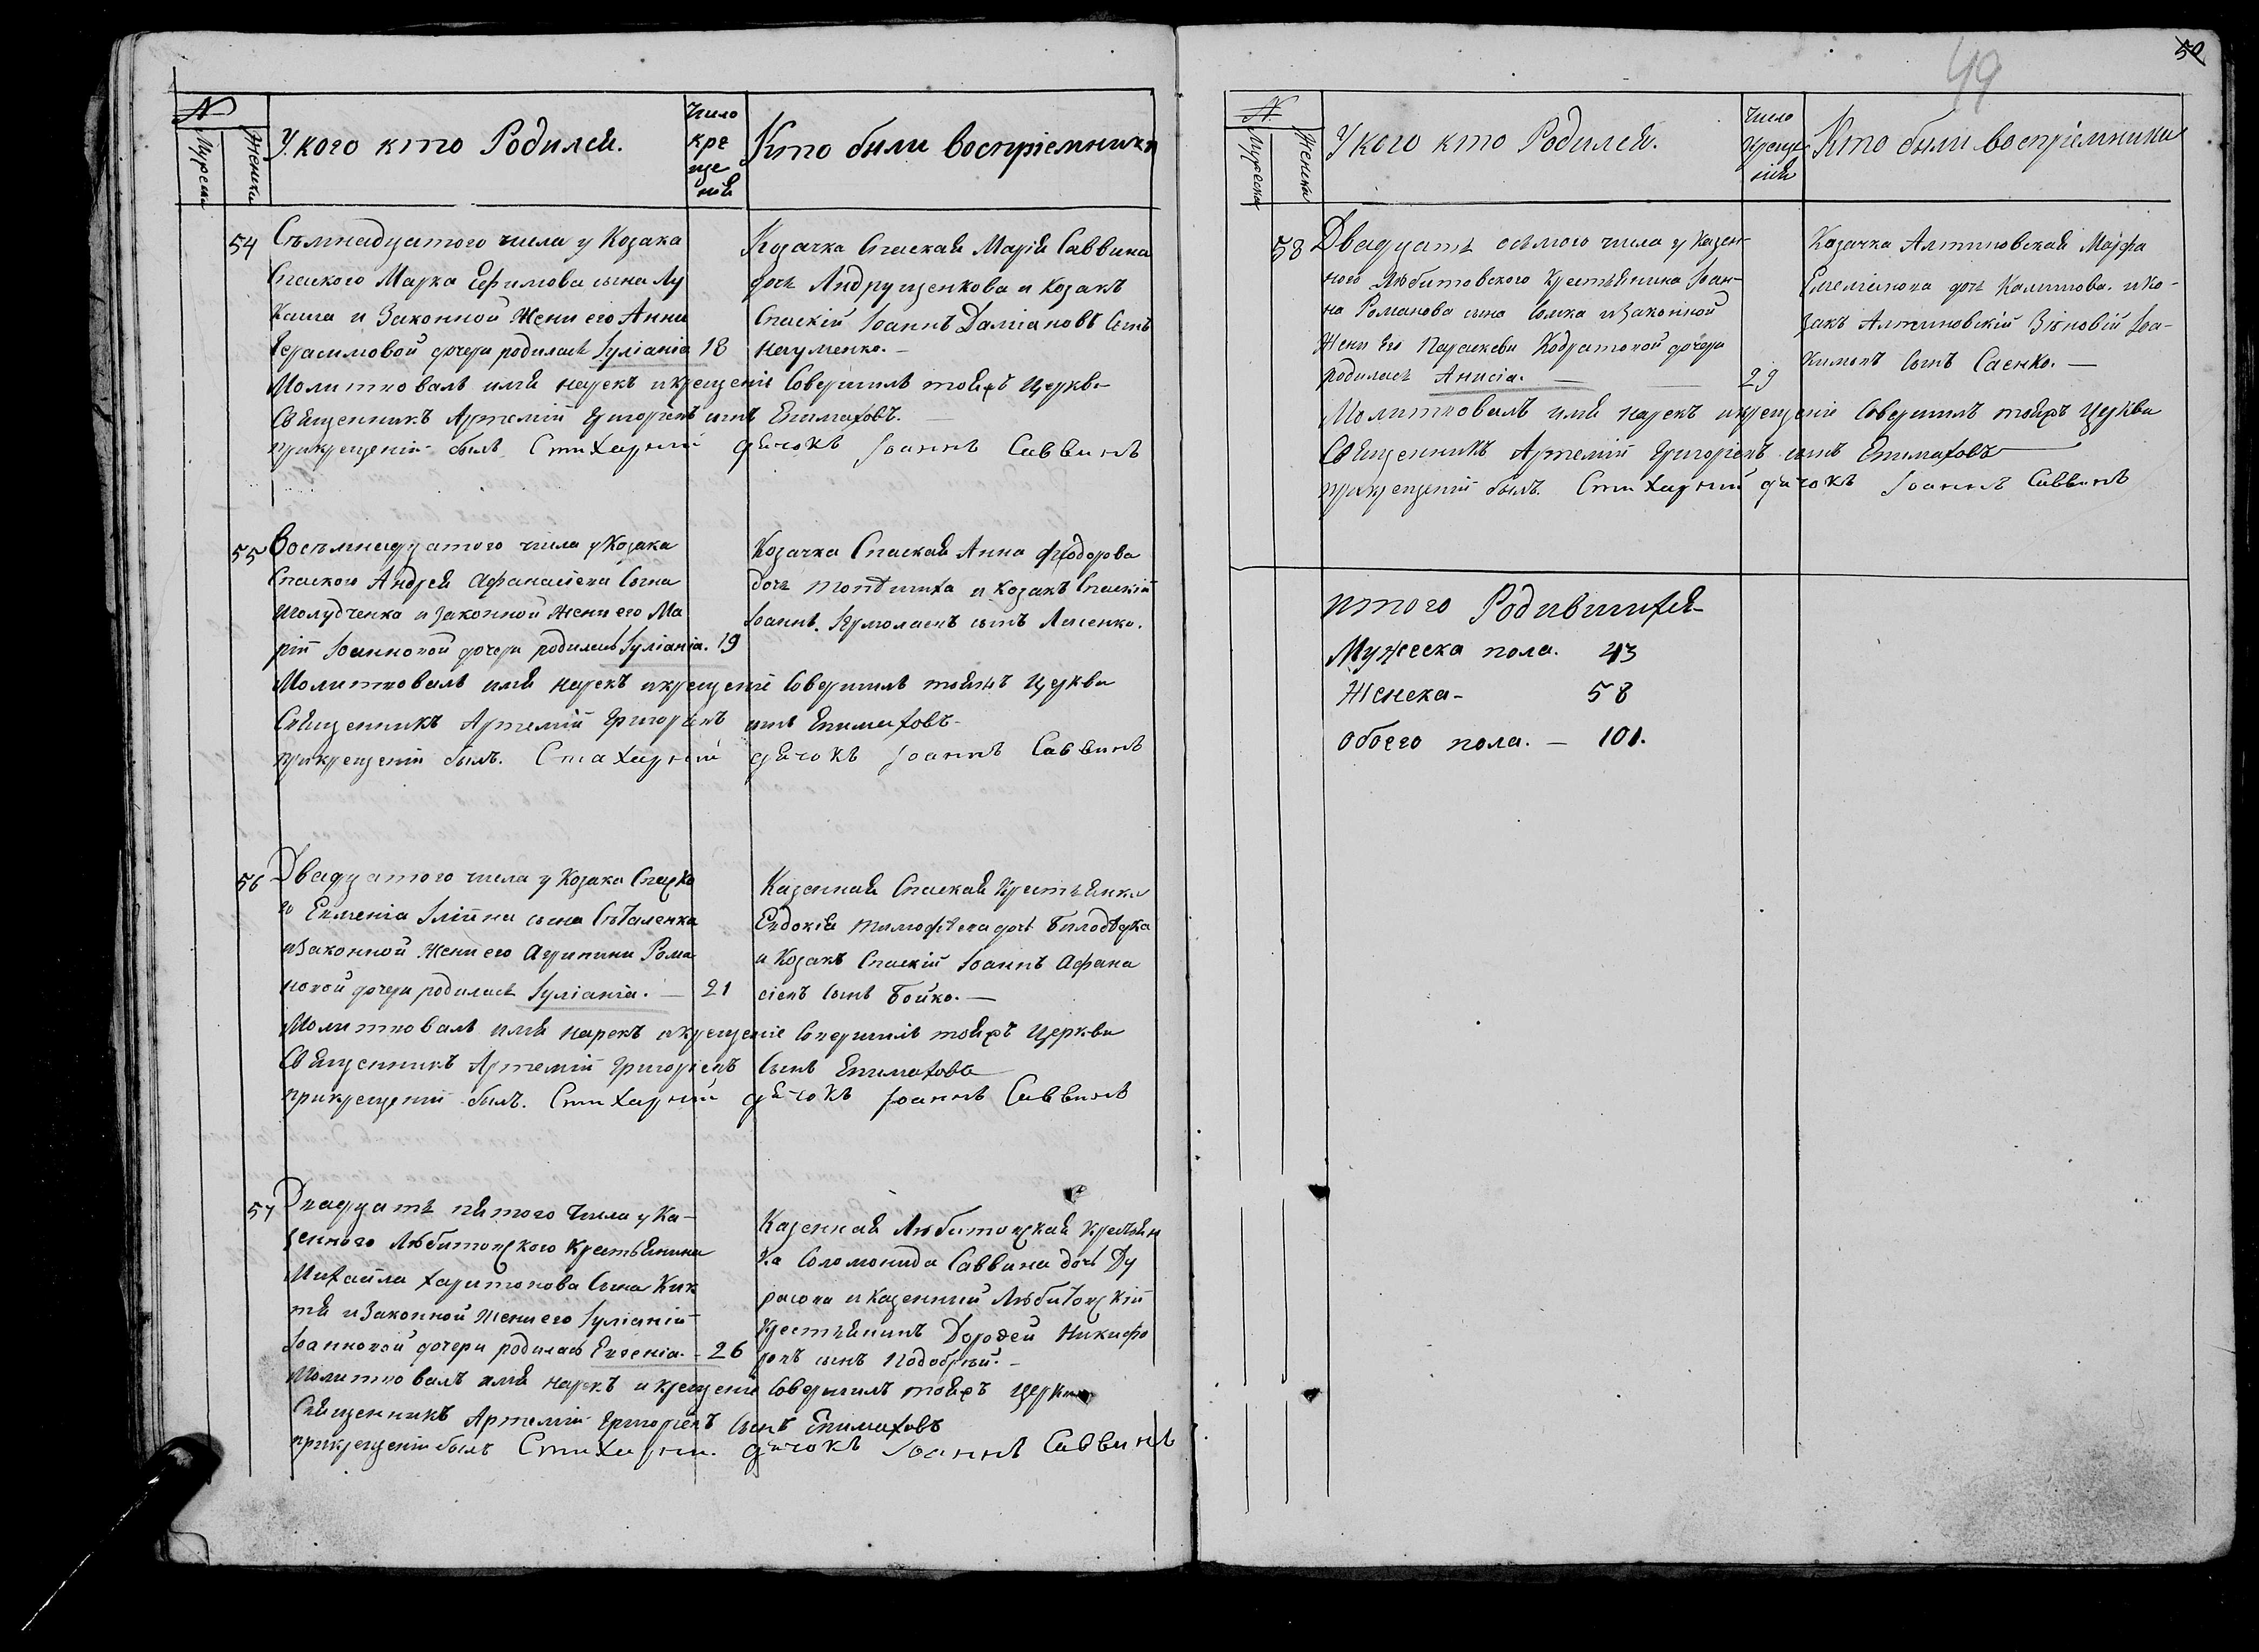 N
Мужеска
Женска
У кого кто Родился.
Число
кре
ще
нія
Кто были воспріемники
54
Съмнадцатого числа у Козака
Спаского Марка Ефимова сына Лу
каша и Законной Жени его Анни
Герасимовой дочери родилась Іуліанія 18
Козачка Спаская Марія Саввина
дочь Андрущенкова и Козакъ
Спаскій Іоаннъ Даміановъ Сынъ
Науменко.
Молитвовалъ имя нарекъ и крещеніе Совершилъ тояжъ Церкви
Священникъ Артемій Григоріевъ сынъ Епимаховъ.
при крещеніи былъ Стихарный дячокъ Іоаннъ Саввинъ
55
Восъмнадцатого числа у Козака
Спаского Андрея Афанасіева Сына
Шолудченка и законной Жени его Ма
ріи Іоанновой дочери родилась Іуліанія. 19
Козачка Спаская Анна Фіодорова
дочь и Козакъ Спаскій
Іоаннъ Ярмолаевъ сынъ Лысенко.
Молитвовалъ имя нарекъ и крещеніе Совершилъ тояжъ Церкви
Священникъ Артемій Григоріевъ сынъ Епимаховъ
при крещеніи былъ. Стихарный дячокъ Іоаннъ Саввинъ
56
Двадцатого числа у Козака Спаско
го Евгенія Іліина сына
и Законной Жени его Агрипини Рома
новой дочери родилась Іуліанія. — 21
Казенная Спаская Крестьянка
Евдокія Тимофѣева дочь Билодѣдка
и Козакъ Спаскій Іоаннъ Афана
сіевъ Сынъ Бойко. —
Молитвовалъ имя нарекъ и крещеніе Совершилъ тояжъ Церкви
Священникъ Артемій Григоріевъ Сынъ Епимаховъ
при крещеніи былъ. Стихарный дячокъ Іоаннъ Саввинъ
57
Двадцать пятого Числа у Ка-
зенного Любитовского Крестьянина
Михаила Харитонова Сына Кик
тя и Законной Жени его Іуліаніи
Іоанновой дочери родилась Евгенія. - 26
Казенная Любитовская Крестьян
ка Соломонида Саввина дочь Ду
расова и Казенний Любитовскій
Крестьянинъ Дорофей Никифо
ровъ сынъ Подобрый. -
Молитвовалъ имя нарекъ и крещеніе Совершилъ тояжъ Церкви
Священникъ Артемій Григоріевъ Сынъ Епимаховъ
при крещеніи былъ Стихарный. дячокъ Іоаннъ Саввинъ
49
50
N.
Мужеска
Женска
У кого кто Родился.
Число
креще
нія
Кто были воспріемники
58
Двадцать осьмого числа у Казен-
ного Любитовского Крестьянина Іоан-
на Романова сына Сомка и Законной
Жени Его Параскеви Кодратовой дочери
родилась Анисія. — 29
Казачка Алтиновская Марфа
Емеліанова дочь Калитова. и Ко-
закъ Алтиновскій Зѣновій Іоа-
кимовъ Сынъ Саенко. —
Молитвовалъ имя нарекъ и крещеніе Совершилъ тояжъ Церкви
Священникъ Артемій Григоріевъ сынъ Епимаховъ
при крещеніи былъ. Стихарный дячокъ Іоаннъ Саввинъ
итого Родившихся-
Мужеска пола. 43
Женска- 58
обоего пола. — 101.